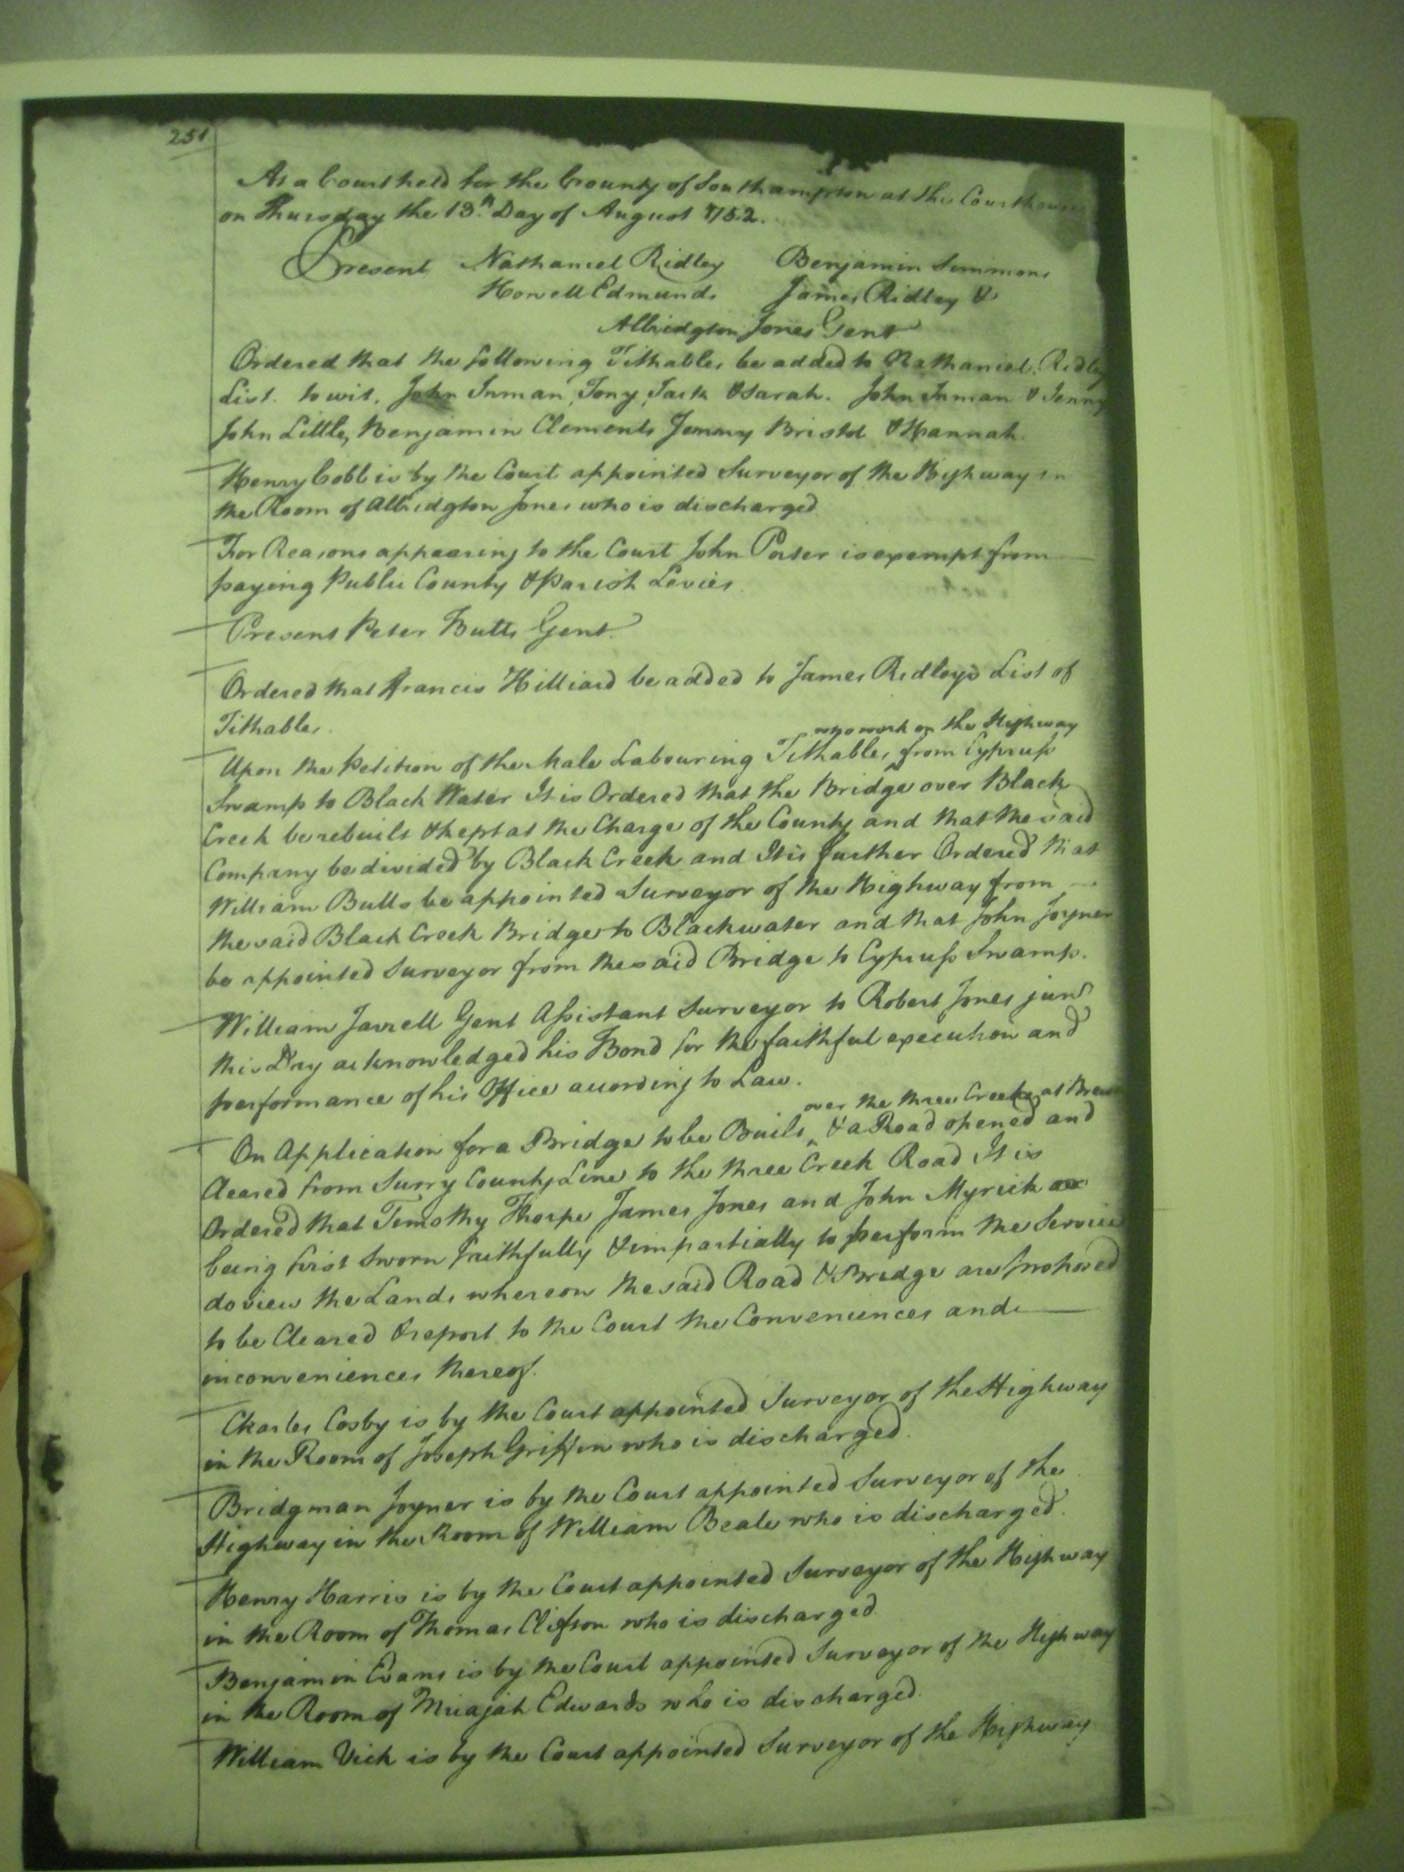 251
At a Court held for the County of Southampton at the Courthouse
on Thursday the 13th Day of August 1752.
Present Nathaniel Ridley Benjamin Simmons
Howell Edmunds James Ridley &
Albridgton Jones Gent
Ordered that the following Tithables be added to Nathaniel Ridley
List. to wit. John Inman, Tony, Jack & Sarah. John Inman & Jenny
John Little, Benjamin Clements Jemmy Bristol & Hannah.
Henry Cobb is by the Court appointed Surveyor of the Highway in
the Room of Albridgton Jones who is discharged
For Reasons appearing to the Court John Porter is exempt from
paying Publu County & Parish Levies.
Present Peter Butts Gent.
Ordered that Francis Hilliard be added to James Ridley's List of
Tithables.
who work on the Highway
Upon the Petition of the Male Labouring Tithables, from Cypruss
Swamp to Black Water It is Ordered that the Bridge over Black
Creek be rebuilt & kept at the Charge of the County and that the said
Company be divided by Black Creek and It is further Ordered that
William Butts be appointed Surveyor of the Highway from
the said Black Creek Bridge to Blackwater and that John Joyner
be appointed Surveyor from the said Bridge to Cypruss Swamp.
William Jarrell Gent Assistant Surveyor to Robert Jones junr
this Day acknowledged his Bond for the faithful execution and
performance of his Office according to Law.
over the three Creeks at
On Application for a Bridge to be Built, & a Road opened and
Cleared from Surry County Line to the three Creek Road It is
Ordered that Timothy Thorpe James Jones and John Myrick
being first Sworn faithfully & impartially to perform the Service
do view the Lands whereon the said Road & Bridge are proposed
to be Cleared & report to the Court the Conveniences and
inconveniences thereof.
Charles Cosby is by the Court appointed Surveyor of the Highway
in the Room of Joseph Griffin who is discharged.
Bridgman Joyner is by the Court appointed Surveyor of the
Highway in the Room of William Beale who is discharged.
Henry Harris is by the Court appointed Surveyor of the Highway
in the Room of Thomas Clifton who is discharged
Benjamin Evans is by the Court appointed Surveyor of the Highway
in the Room of Micajah Edwards who is discharged.
William Vick is by the Court appointed Surveyor of the Highway